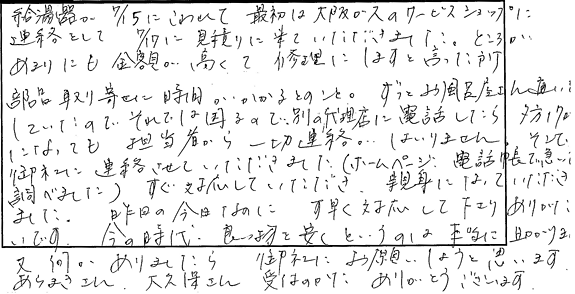 給湯器が 7/15にこわれて 最初は大阪ガスのサービスショップに
連絡をして 7/17に見積りに来ていただきました。ところが
あまりにも金額が高くて 修理にしますと言ったが
部品取り寄せに時間がかかるとのこと。ずっとお風呂屋さん通い
していたので、それでは困るので、別の代理店に電話したら 夕方
になっても 担当者から一切連絡がはいりません。そこで
御社に連絡させていただきました(ホームページ、電話帳で急いで
調べました) すぐ対応していただき、親身になっていただき
ました。 昨日の今日なのに す早く対応して下さり ありがたい
です。今の時代 良い物を安くというのは本当に助かります
又 何かありましたら 御社にお願いしようと思います
あらまきさん、大久保さん 受付の方に ありがとうございます